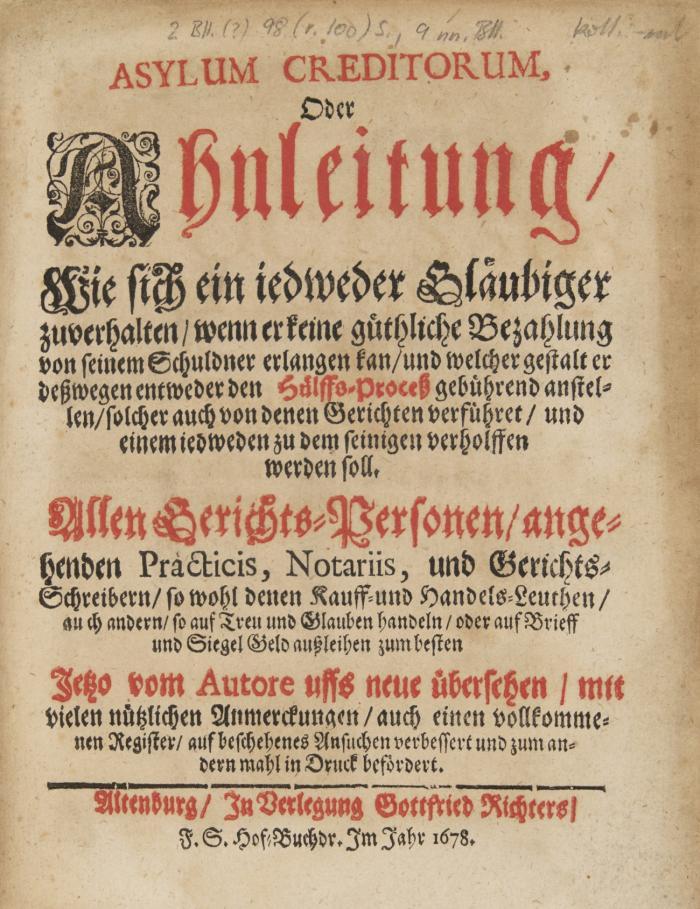 2 Bll. (?) 98 (r. 100) S., 9 nn. Bll. koll.
ASYLUM CREDITORUM,
Oder
Ahnleitung/
Wie sich ein iedweder Gläubiger
zuverhalten/wenn er keine güthliche Bezahlung
von seinem Schuldner erlangen kan/und welcher gestalt er
deßwegen entweder den Hülffs-Proceß gebührend anstel-
len/solcher auch von denen Gerichten verführet/ und
einem iedweden zu dem seinigen verholffen
werden soll.
Allen Gerichts-Personen/ange-
henden Practicis, Notariis, und Gerichts-
Schreibern/ so wohl denen Kauff-und Handels-Leuthen/
au ch andern/ so auf Treu und Glauben handeln/ oder auf Brieff
und Siegel Geld außleihen zum besten
Jetzo vom Autore uffs neue übersehen / mit
vielen nützlichen Anmerckungen/auch einen vollkomme-
nen Register/ auf beschehenes Ansuchen verbessert und zum an-
dern mahl in Druck befördert.
Altenburg/ In Verlegung Gottfried Richters/
F. S. Hof-Buchdr. Im Jahr 1678.